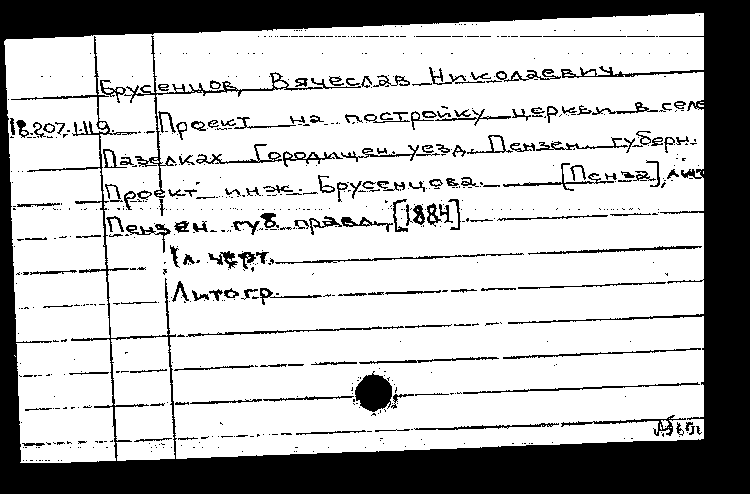 Брусенцов, Вячеслав Николаевич.
18.207.1.119 Проект на постройку церкви в селе
Пазелках Городищен. уезд. Пензен. губерн.
Проект инж. Брусенцова. [Пенза], лит.
Пензен. губ. правл., [1884].
1 л. черт.
Литогр.